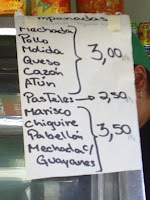 mpanadas
Mechada
Pollo
Molida
Queso
Cazón
Atún
3,00
Pasteles → 2,50
Marisco
Chiguire
Pabellón
Mechada c/
Guayanes
3,50